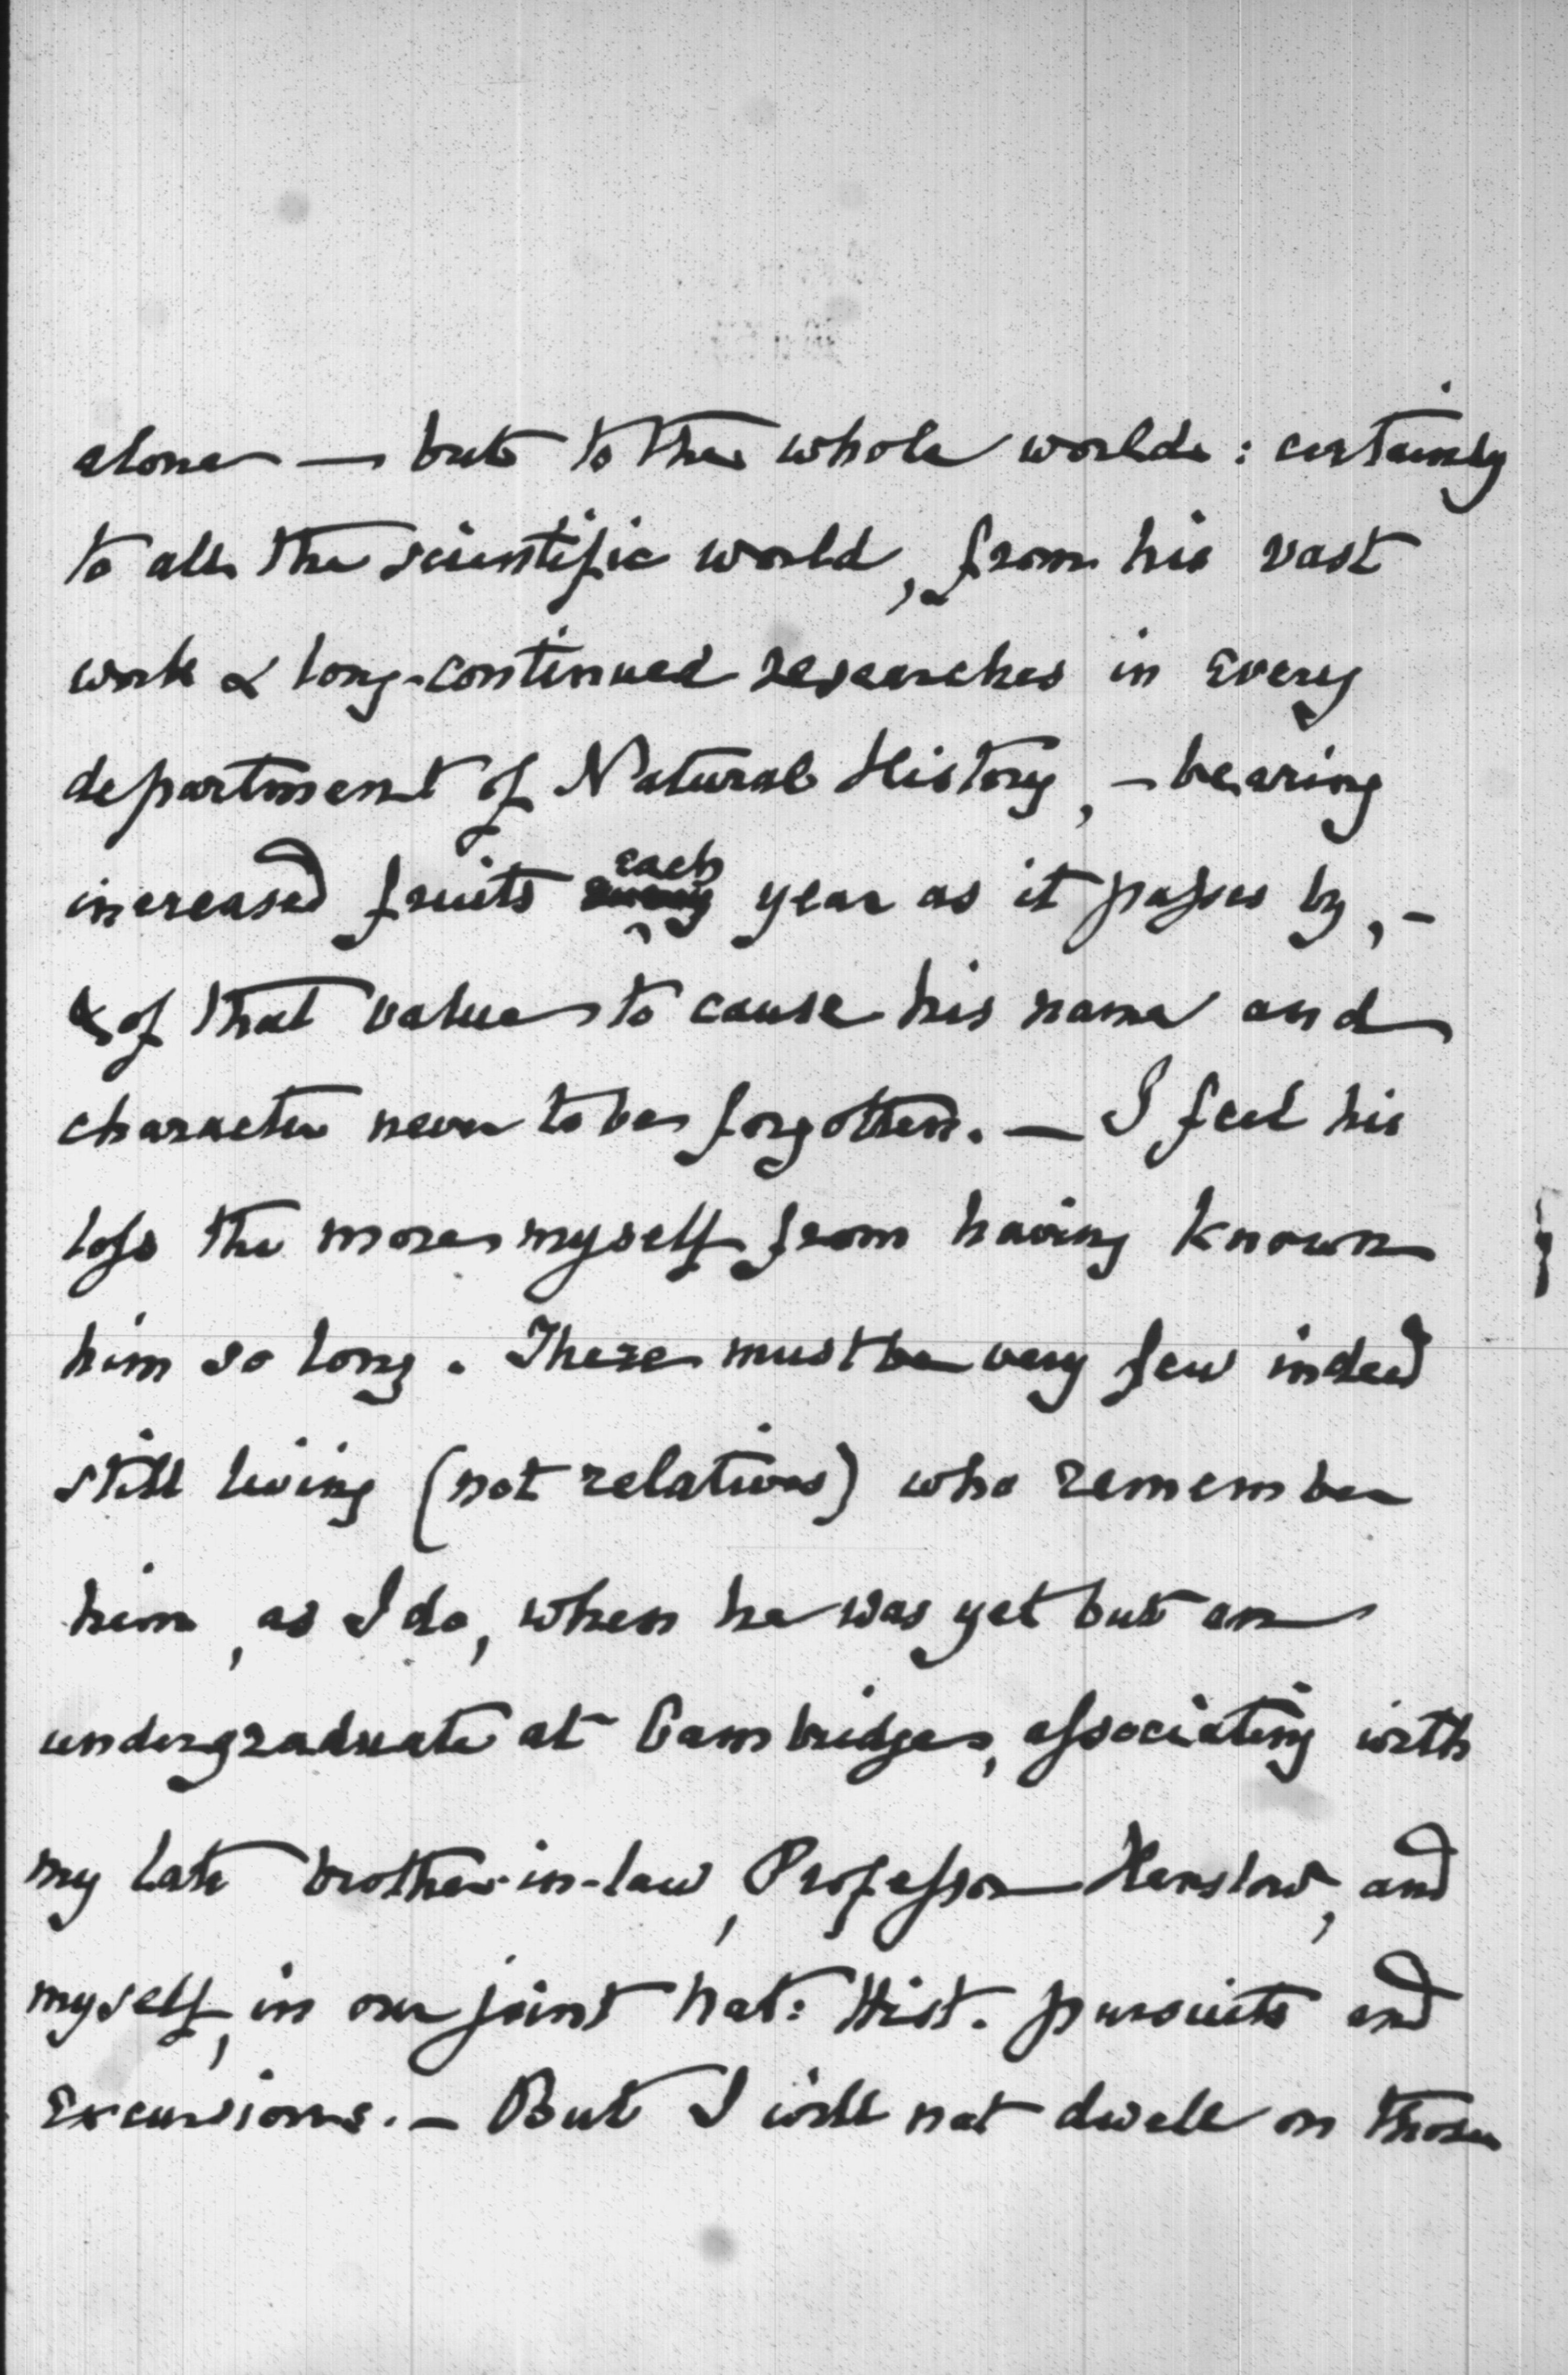 alone — but to the whole world: certainly
to all the scientific world, from his vast
work & long-continued researches in every
department of Natural History, - bearing
increased fruits each year as it passes by, -
& of that value to cause his name and
character never to be forgotten. — I feel his
loss the more myself from having known
him so long. There must be very few indeed
still living (not relatives) who remember
him, as I do, when he was yet but an
undergraduate at Cambridge, associating with
my late brother-in-law, Professor Henslow, and
myself, in our joint Nat: Hist. pursuits and
excursions. — But I will not dwell on those